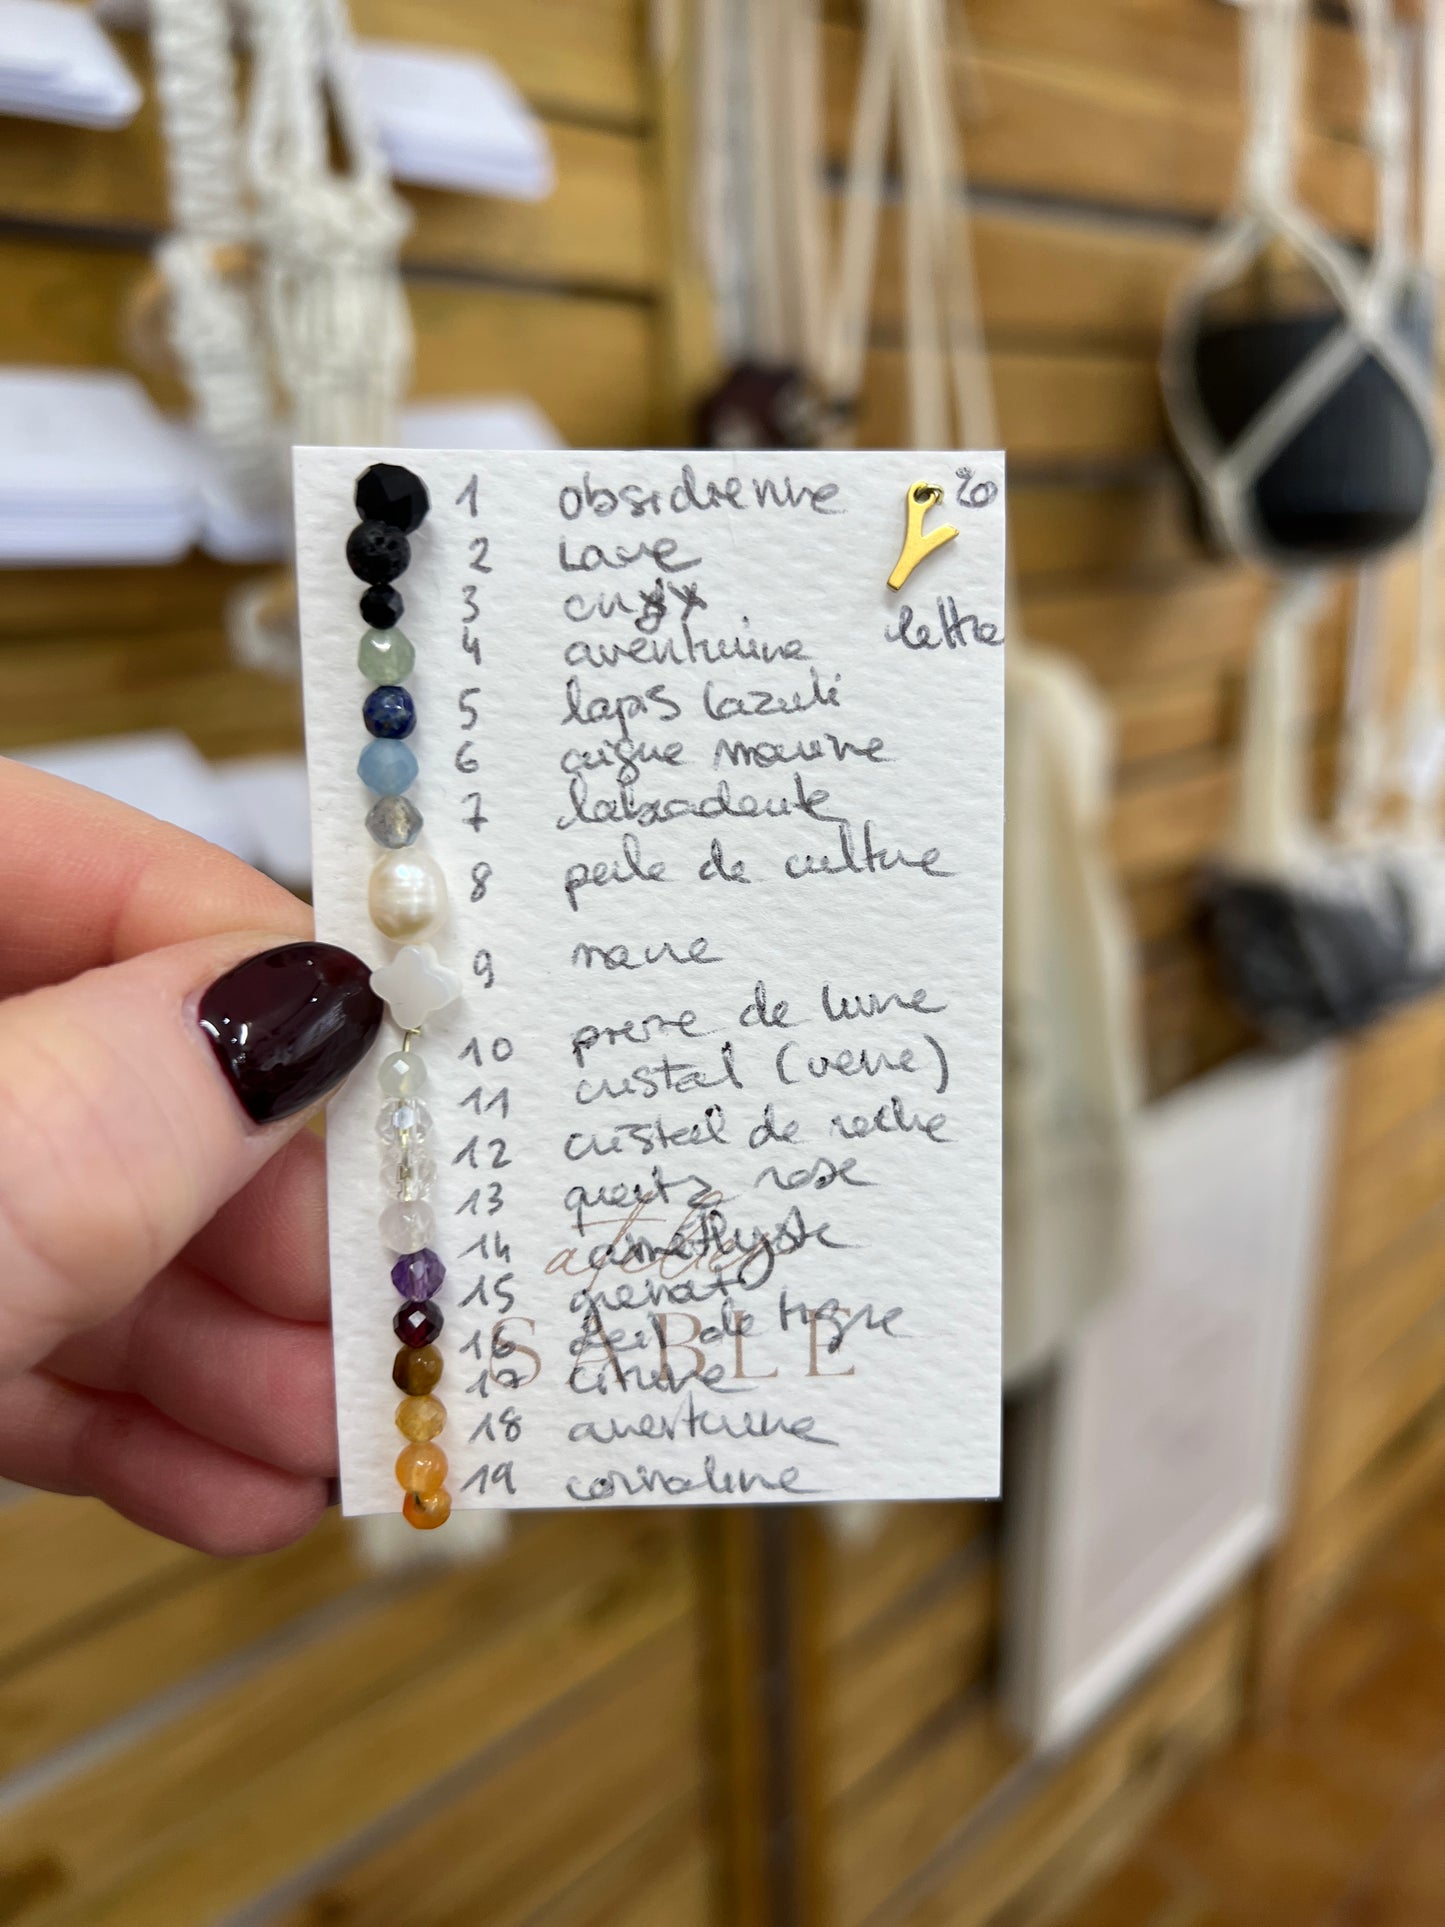 1 obsidienne 20
2 Lave
3 onyx
lettre
4 aventurine
5 lapis lazuli
6 aigue marine
7 labradorite
8 perle de culture
9 nacre
10 pierre de lune
11 cristal (verre)
12 cristal de roche
13 quartz rose
14 améthyste
atelier
15 grenat
16 œil de tigre
SABLE
17 citrine
18 aventurine
19 cornaline